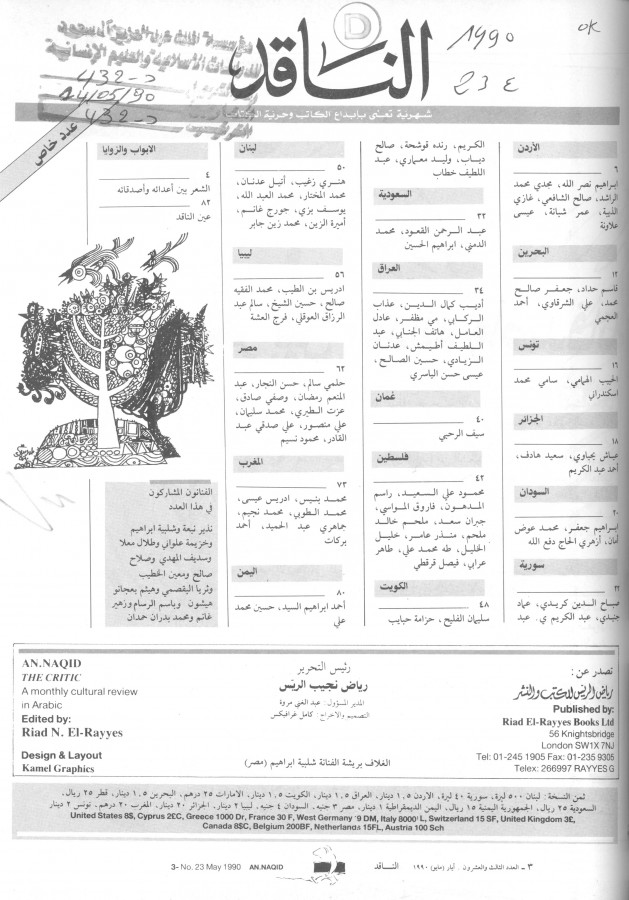 مؤسسة الملك عبد العزيز آل سعود
للدراسات الاسلامية والعلوم الإنسانية
432 - د
04/05/90
432 - د
D
1990
23 ع
OK
الناقد
شهرية تعنى بابداع الكاتب وحرية الكتاب
عدد خاص
الأردن
٦
ابراهيم نصر الله، مجدي محمد
الراشد، صالح الشافعي، غازي
الذيبة، عمر شبانة، عيسى
علاونة
البحرين
١٢
قاسم حداد، جعفر صالح
محمد، علي الشرقاوي، أحمد
العجمي
تونس
١٦
الحبيب الهمامي، سامي محمد
اسكندراني
الجزائر
١٨
عياش يحياوي، سعيد هادف،
أحمد عبد الكريم
السودان
٢٠
ابراهيم جعفر، محمد عوض
أمان، أزهري الحاج دفع الله
سورية
٢٢
صباح الدين كريدي، عماد
جنيدي، عبد الكريم ي. عبد
الكريم، رنده قوشحة، صالح
دياب، وليد معماري، عبد
اللطيف خطاب
السعودية
٣٢
عبد الرحمن القعود، محمد
الدمني، ابراهيم الحسين
العراق
٣٤
أديب كمال الدين، عذاب
الركابي، مي مظفر، عادل
العامل، هاتف الجنابي، عبد
اللطيف أطيمش، عدنان
الزيادي، حسين الصالح،
عيسى حسن الياسري
عُمان
٤٠
سيف الرحبي
فلسطين
٤٢
محمود علي السعيد، راسم
المدهون، فاروق المواسي،
جبران سعد، ملحم خالد
ملحم، منذر عامر، خليل
الخليل، طه محمد علي، طاهر
عرابي، فيصل قرقطي
الكويت
٤٨
سليمان الفليح، حزامة حبايب
لبنان
٥٠
هنري زغيب، أتيل عدنان،
محمد المختار، محمد العبد الله،
يوسف بزي، جورج غانم،
أميرة الزين، محمد زين جابر
ليبيا
٥٦
ادريس بن الطيب، محمد الفقيه
صالح، حسين الشيخ، سالم عبد
الرزاق العوقلي، فرج العشة
مصر
٦٢
حلمي سالم، حسن النجار، عبد
المنعم رمضان، وصفي صادق،
عزت الطيري، محمد سليمان،
علي منصور، علي صدقي عبد
القادر، محمود نسيم
المغرب
٧٣
محمد بنيس، ادريس عيسى،
محمد الطوبي، محمد نجيم،
جماهري عبد الحميد، أحمد
بركات
اليمن
٨٠
أحمد ابراهيم السيد، حسين محمد
علي
الابواب والزوايا
٤
الشعر بين أعدائه وأصدقائه
٨٢
عين الناقد
الفنانون المشاركون
في هذا العدد
نذير نبعة وشلبية ابراهيم
وخزيمة علواني وطلال معلا
وسديف المهدي وصلاح
صالح ومعين الخطيب
وثريا البقصمي وهيثم بعجانو
هيشون وباسم الرسام وزهير
غانم ومحمد بدران حمدان
تصدر عن:
رياض الريس للكتب والنشر
Published by:
Riad El-Rayyes Books Ltd
56 Knightsbridge
London SW1X 7NJ
Tel: 01-245 1905 Fax: 01-235 9305
Telex: 266997 RAYYES G
رئيس التحرير
رياض نجيب الريّس
المدير المسؤول: عبد الغني مروة
التصميم والاخراج: كامل غرافيكس
الغلاف بريشة الفنانة شلبية ابراهيم (مصر)
AN.NAQID
THE CRITIC
A monthly cultural review
in Arabic
Edited by:
Riad N. El-Rayyes
Design & Layout
Kamel Graphics
ثمن النسخة: لبنان ٥٠٠ ليرة، سورية ٤٠ ليرة، الاردن ١,٥ دينار، العراق ١,٥ دينار، الكويت ١,٥ دينار، الامارات ٢٥ درهم، البحرين ١,٥ دينار، قطر ٢٥ ريال،
السعودية ٢٥ ريال، الجمهورية اليمنية ١٥ ريال، اليمن الديمقراطية ١ دينار، مصر ٣ جنيه، السودان ٤ جنيه، ليبيا ٢ دينار، الجزائر ٢٠ دينار، المغرب ٢٠ درهم، تونس ٢ دينار
United States 8$, Cyprus 2£C, Greece 1000 Dr, France 30 F, West Germany 9 DM, Italy 8000 L, Switzerland 15 SF, United Kingdom 3£,
Canada 8$C, Belgium 200BF, Netherlands 15FL, Austria 100 Sch
3- No. 23 May 1990 AN.NAQID
٣ - العدد الثالث والعشرون . أيار (مايو) ١٩٩٠ الناقد